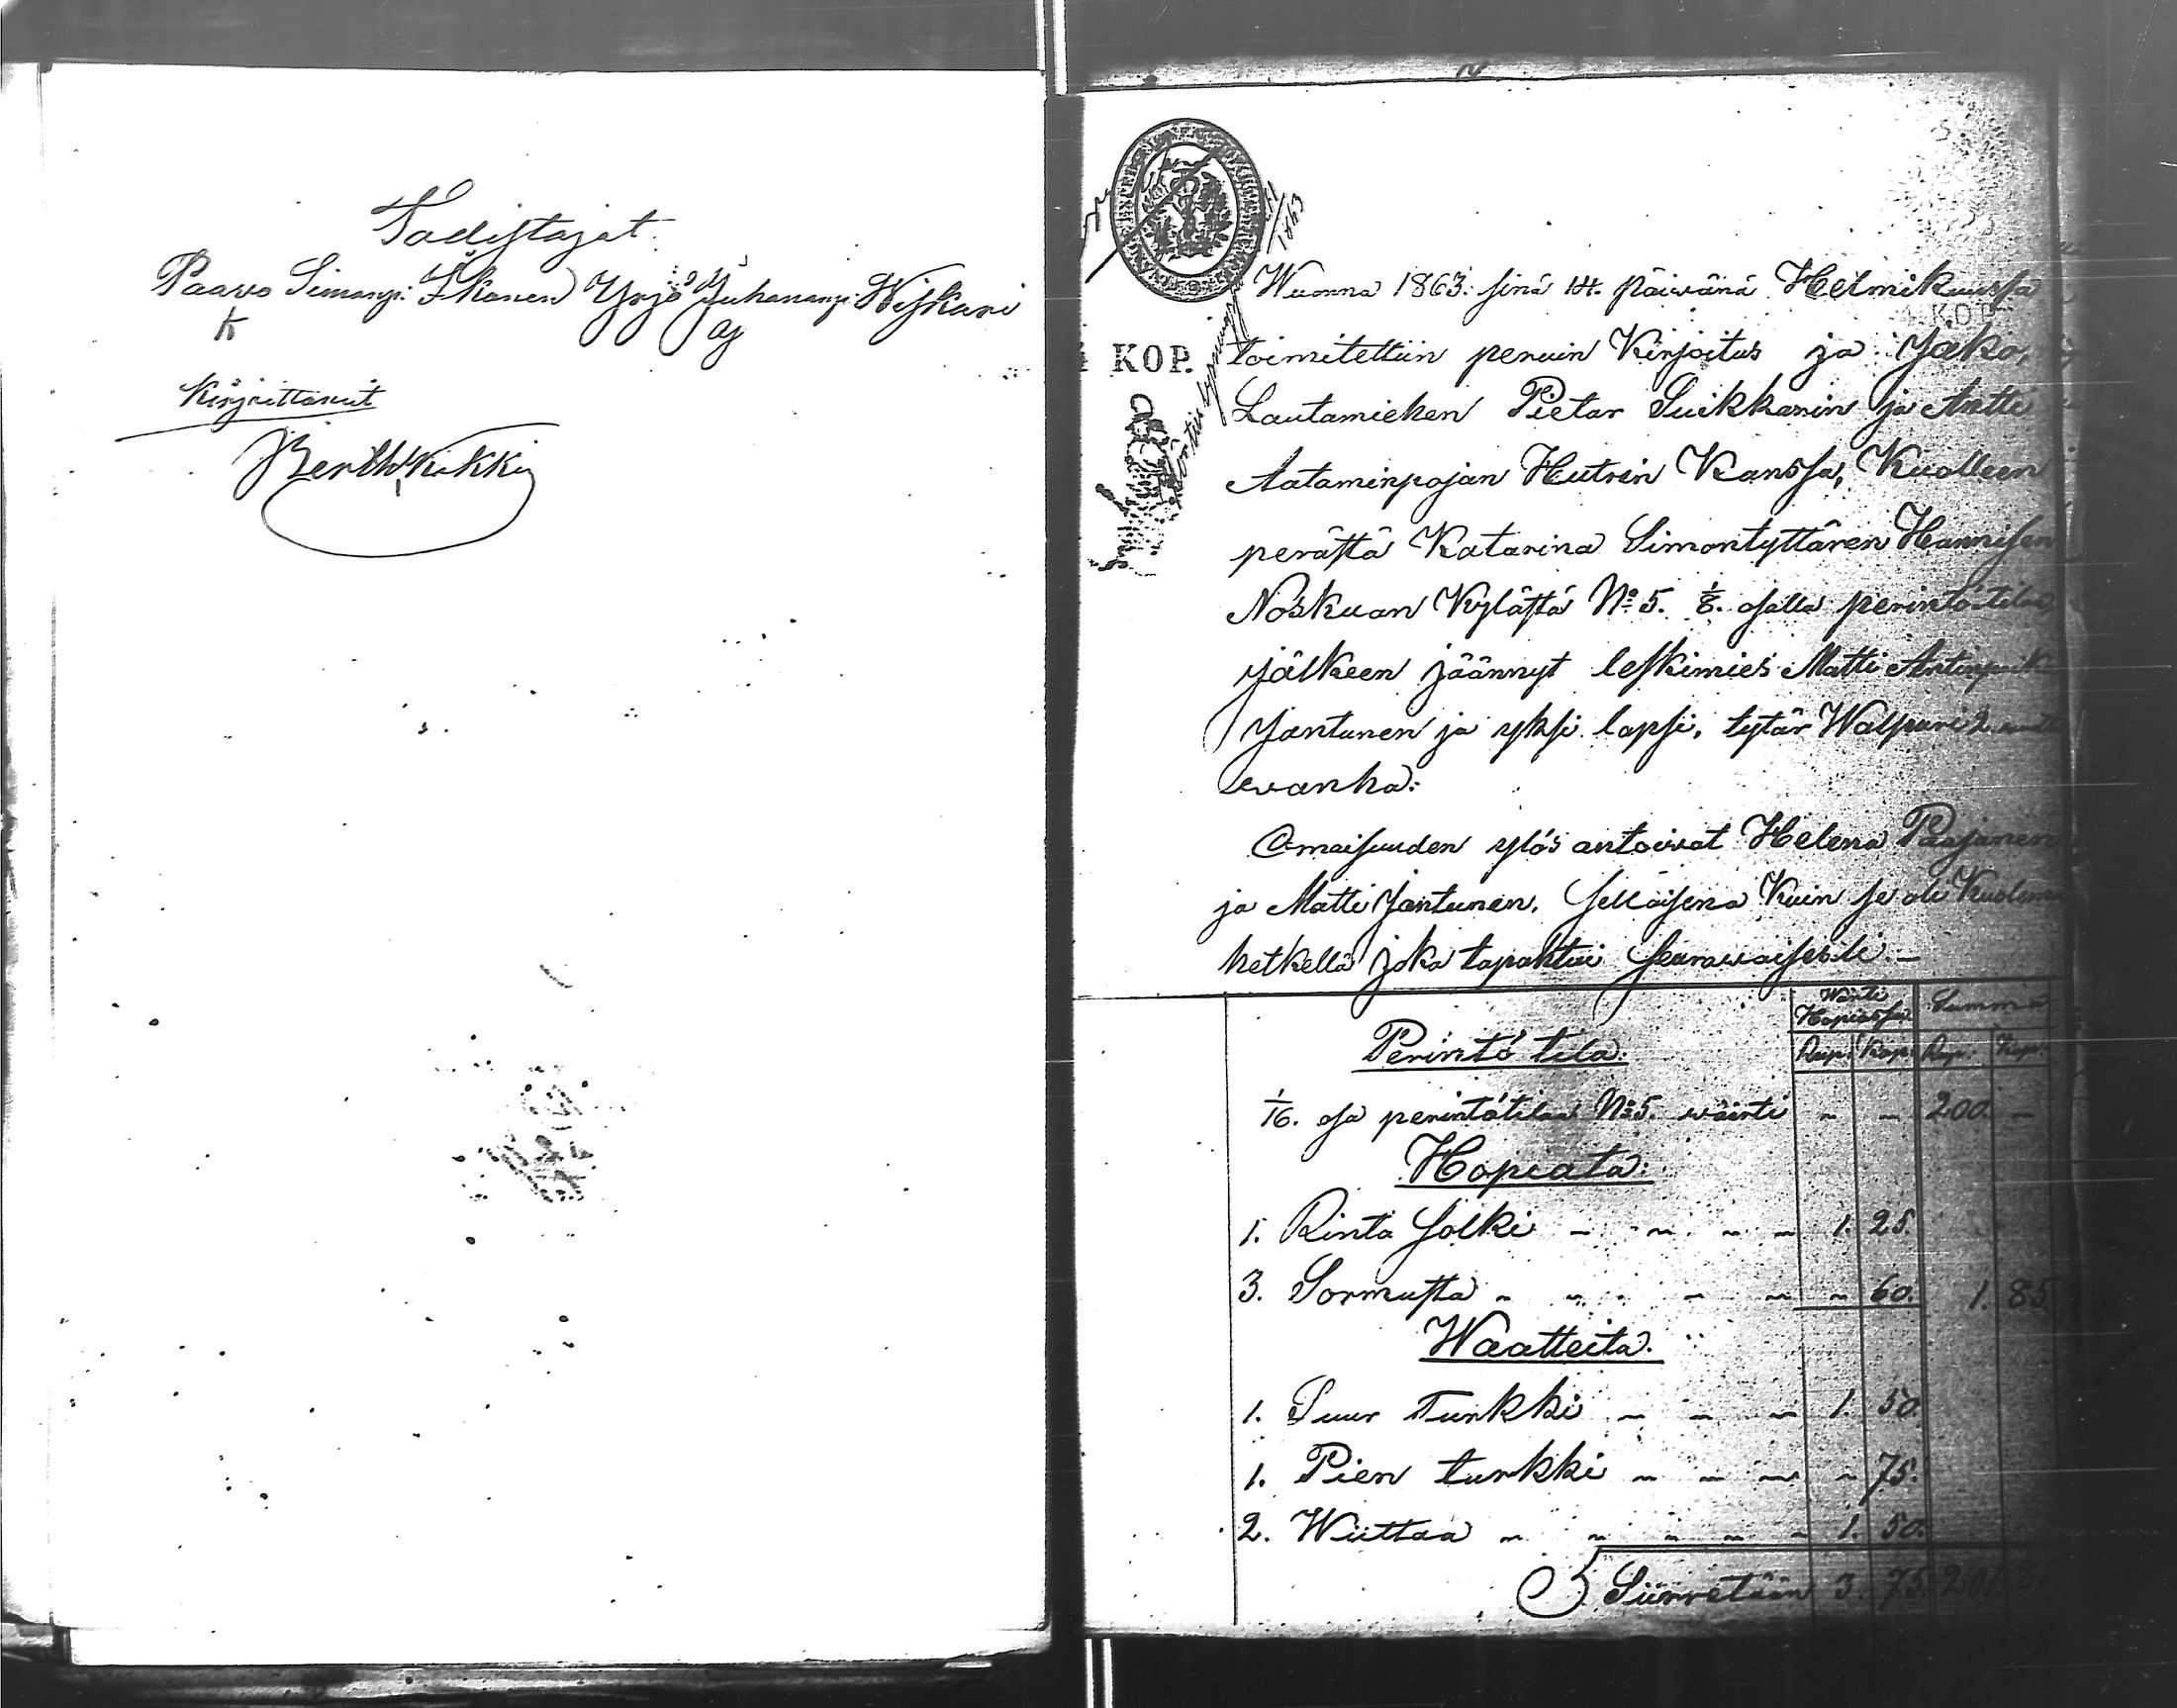 Todistajat:
Paavo Simonp: Ikonen Yrjö Juhananp: Wiskari
Kirjoittanut
Berth: Kukko
KOP.
Wuonna 1863: sinä 14. päivänä Helmikuussa
toimitettiin peruin Kirjoitus ja Jako,
Lautamiehen Pietar Suikkanin ja Antti
Aataminpojan Hutrin Kanssa, Kuolleen
perästä Katarina Simontyttären Hannisen
Noskuan Kylästä No 5. 1/8. osalla perintötilaa
jälkeen jäännyt leskimies Matti Antinpoika
Jantunen ja yksi lapsi, tytär Walpuri 2.
wanha:
Omaisuuden ylös antoivat Helena Paajanen
ja Matti Jantunen. Sellaisena Kuin se oli Kuoleman
hetkellä joka tapahtui seurawaisesti. —
Wärti
Hopiassa. Summa
Rup. Kop. Rup. Kop.
Perintö tila:
1/16. osa perintötilaa No 5. wärti " " 200. —
Hopiata:
1. Rinta solki " " " " 1. 25.
3. Sormusta " " " " " " 60. 1. 85.
Waatteita.
1. Suur Turkki " " " 1. 50.
1. Pien turkki " " " " 75.
2. Wiittaa " " " " " 1. 50.
Siirretään 3. 75. 201.